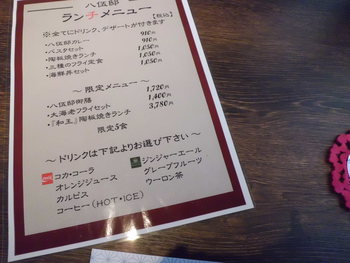 八伍邸
ランチメニュー
【税込】
※全てにドリンク、デザートが付きます
・八伍邸カレー 910円
・パスタセット 910円
・陶板焼きランチ 1,050円
・三種のフライ定食 1,050円
・海鮮丼セット 1,050円
～限定メニュー～
・八伍邸御膳 1,720円
・大海老フライセット 1,400円
・『和王』陶板焼きランチ 3,780円
限定5食
～ドリンクは下記よりお選び下さい～
コカ・コーラ ジンジャーエール
オレンジジュース グレープフルーツ
カルピス ウーロン茶
コーヒー(HOT・ICE)